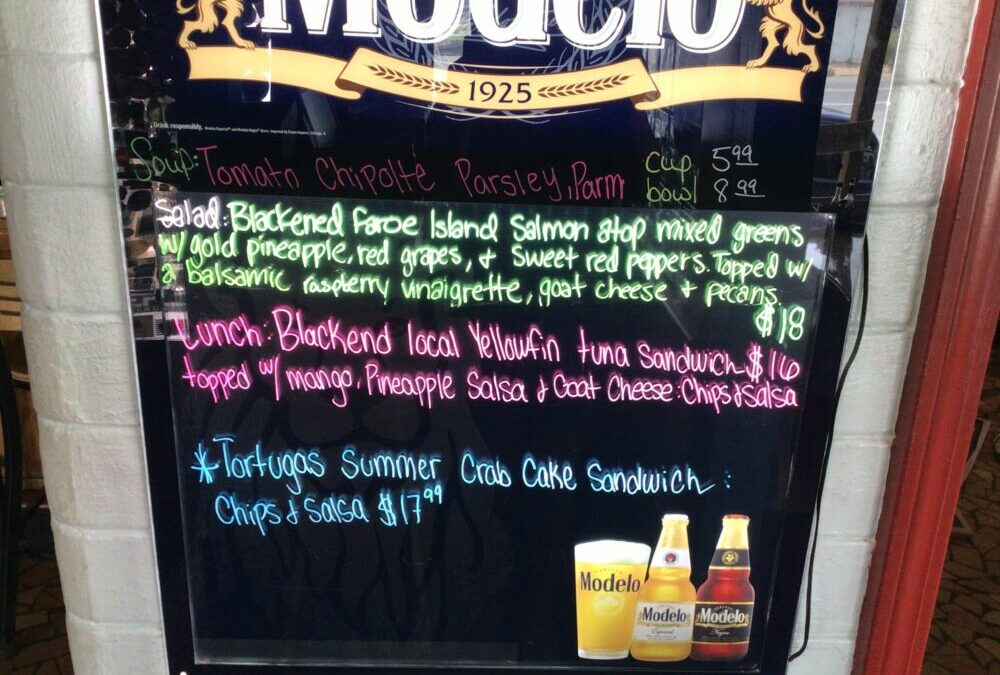 Modelo
1925
Drink responsibly.
Soup: Tomato Chipolté Parsley, Parm cup 5.99
bowl 8.99
Salad: Blackened Faroe Island Salmon atop mixed greens
w/ gold pineapple, red grapes, & Sweet red peppers. Topped w/
a balsamic raspberry vinaigrette, goat cheese + pecans.
$18
Lunch: Blackend local Yellowfin tuna Sandwich $16
topped w/ mango, Pineapple Salsa & Goat Cheese: Chips & Salsa
*Tortugas Summer Crab Cake Sandwich:
Chips & Salsa $17.99
Modelo
Modelo
Especial
Modelo
Negra